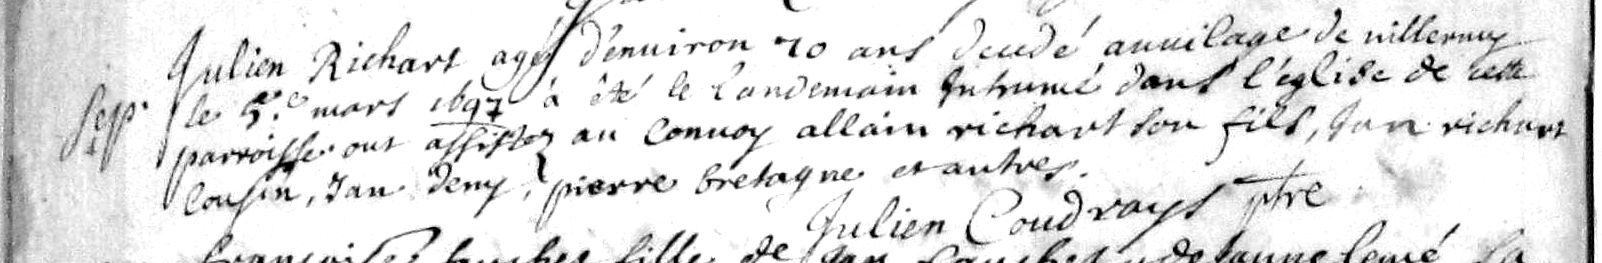 Julien Richart agé d'enuiron 70 ans decedé au uilage de uillermy
Sepp. le 5.e mars 1697 à été le landemain Inhumé dans l'église de cette
parroisse. ont assistez au Conuoy allain richart son fils, Jan richart
Cousin, Jan deny, pierre bretagne et autres.
Julien Coudrays ptre
françoise fille de Jan